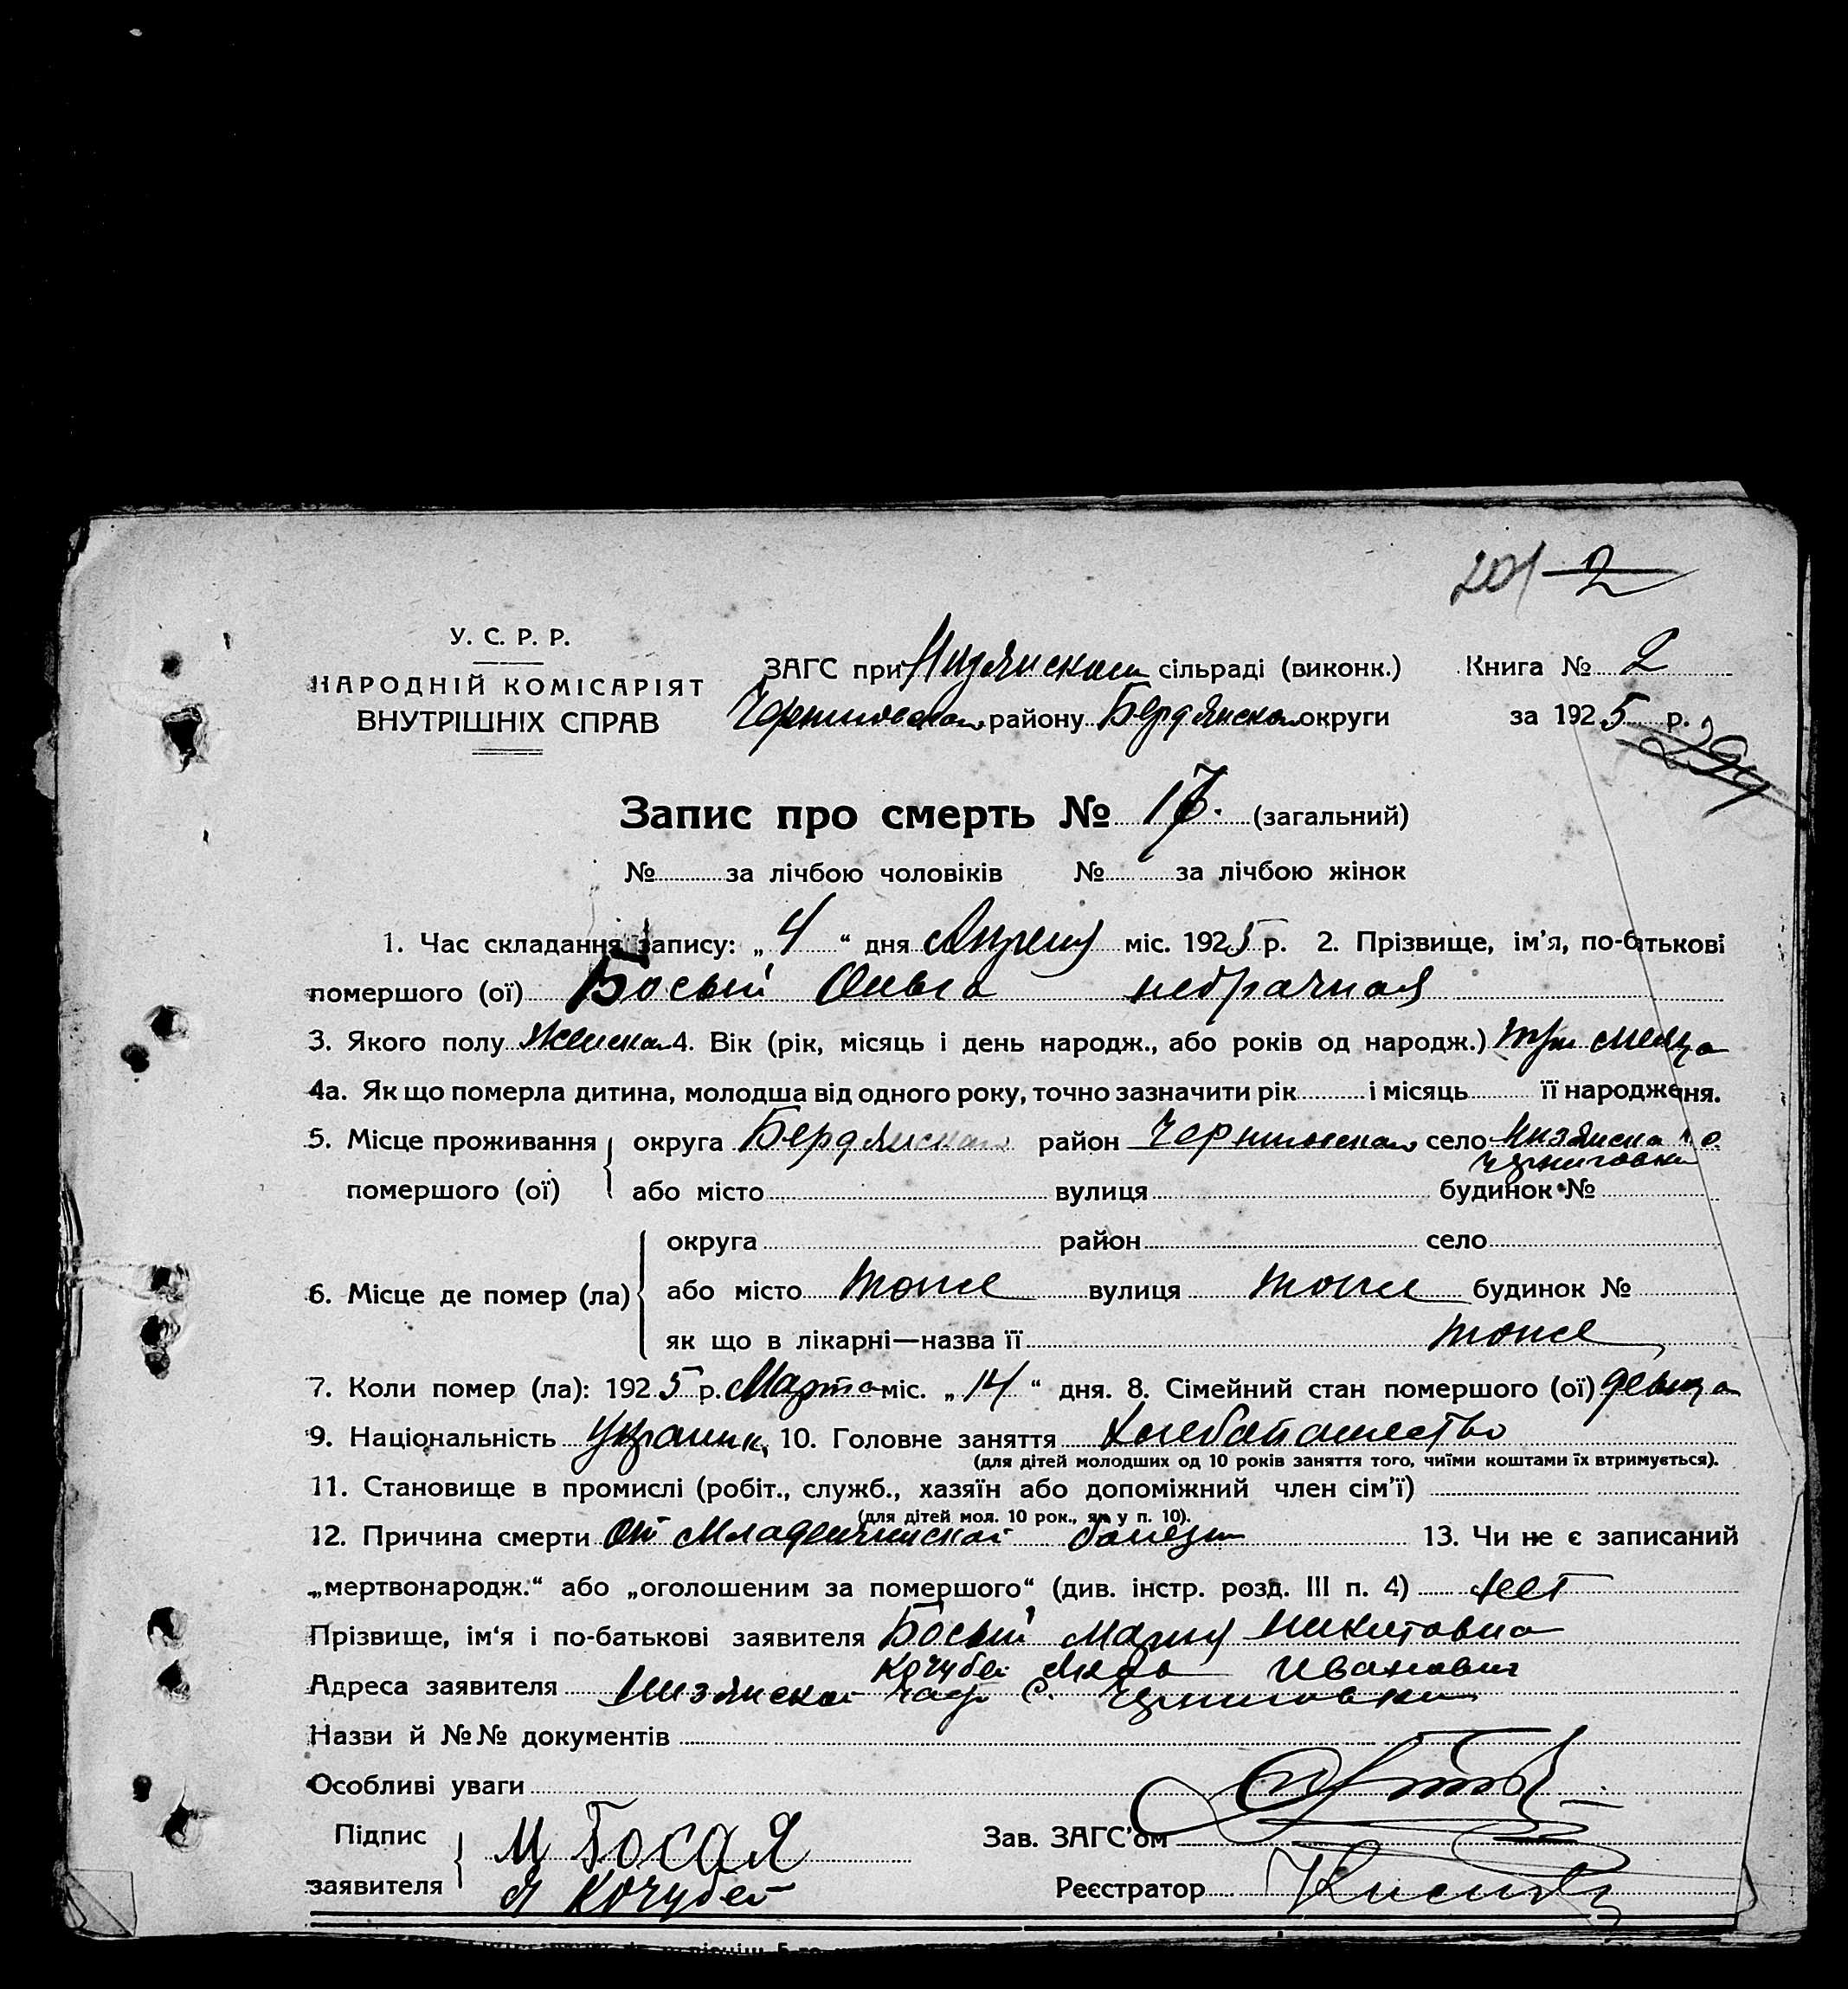 201 2
У. С. Р. Р.
НАРОДНІЙ КОМІСАРІЯТ
ВНУТРІШНІХ СПРАВ
ЗАГС при Низянском сільраді (виконк.) Книга № 2
Черниговском району Бердянском округи за 1925 р.
Запис про смерть № 17. (загальний)
№ за лічбою чоловіків № за лічбою жінок
1. Час складання запису: „ 4 “ дня Апреля міс. 1925 р. 2. Прізвище, ім’я, по-батькові
помершого (ої) Босый Ольга небрачная
3. Якого полу Женска 4. Вік (рік, місяць і день народж., або років од народж.) три месяца
4а. Як що померла дитина, молодша від одного року, точно зазначити рік і місяць її народження.
5. Місце проживання округа Бердянском район Черниговском село Низянска
Черниговки
помершого (ої) або місто вулиця будинок №
округа район село
6. Місце де помер (ла) або місто тоже вулиця тоже будинок №
як що в лікарні—назва її тоже
7. Коли помер (ла): 1925 р. Марта міс. „ 14 “ дня. 8. Сімейний стан помершого (ої) девица
9. Національність Украинк 10. Головне заняття Хлебопашество
(для дітей молодших од 10 років заняття того, чиїми коштами їх втримується).
11. Становище в промислі (робіт., служб., хазяїн або допоміжний член сім’ї)
(для дітей мол. 10 рок., як у п. 10).
12. Причина смерти От Младенчиской болезни 13. Чи не є записаний
„мертвонародж.“ або „оголошеним за помершого“ (див. інстр. розд. III п. 4) нет
Прізвище, ім‘я і по-батькові заявителя Босый Мария Никитовна
Кочубей Иванович
Адреса заявителя Низянской с. Черниговки
Назви й №№ документів
Особливі уваги
Підпис М Босая Зав. ЗАГС’ом
заявителя Я Кочубей Реєстратор